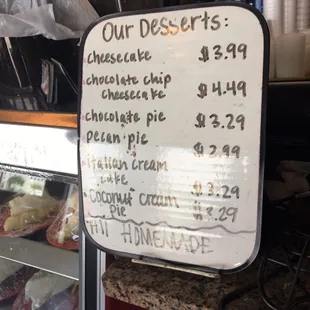 Our Desserts:
cheesecake $3.99
chocolate chip
cheesecake $4.49
chocolate pie $3.29
pecan pie $2.99
Italian cream
cake $3.29
Coconut cream
Pie $3.29
All HOMEMADE